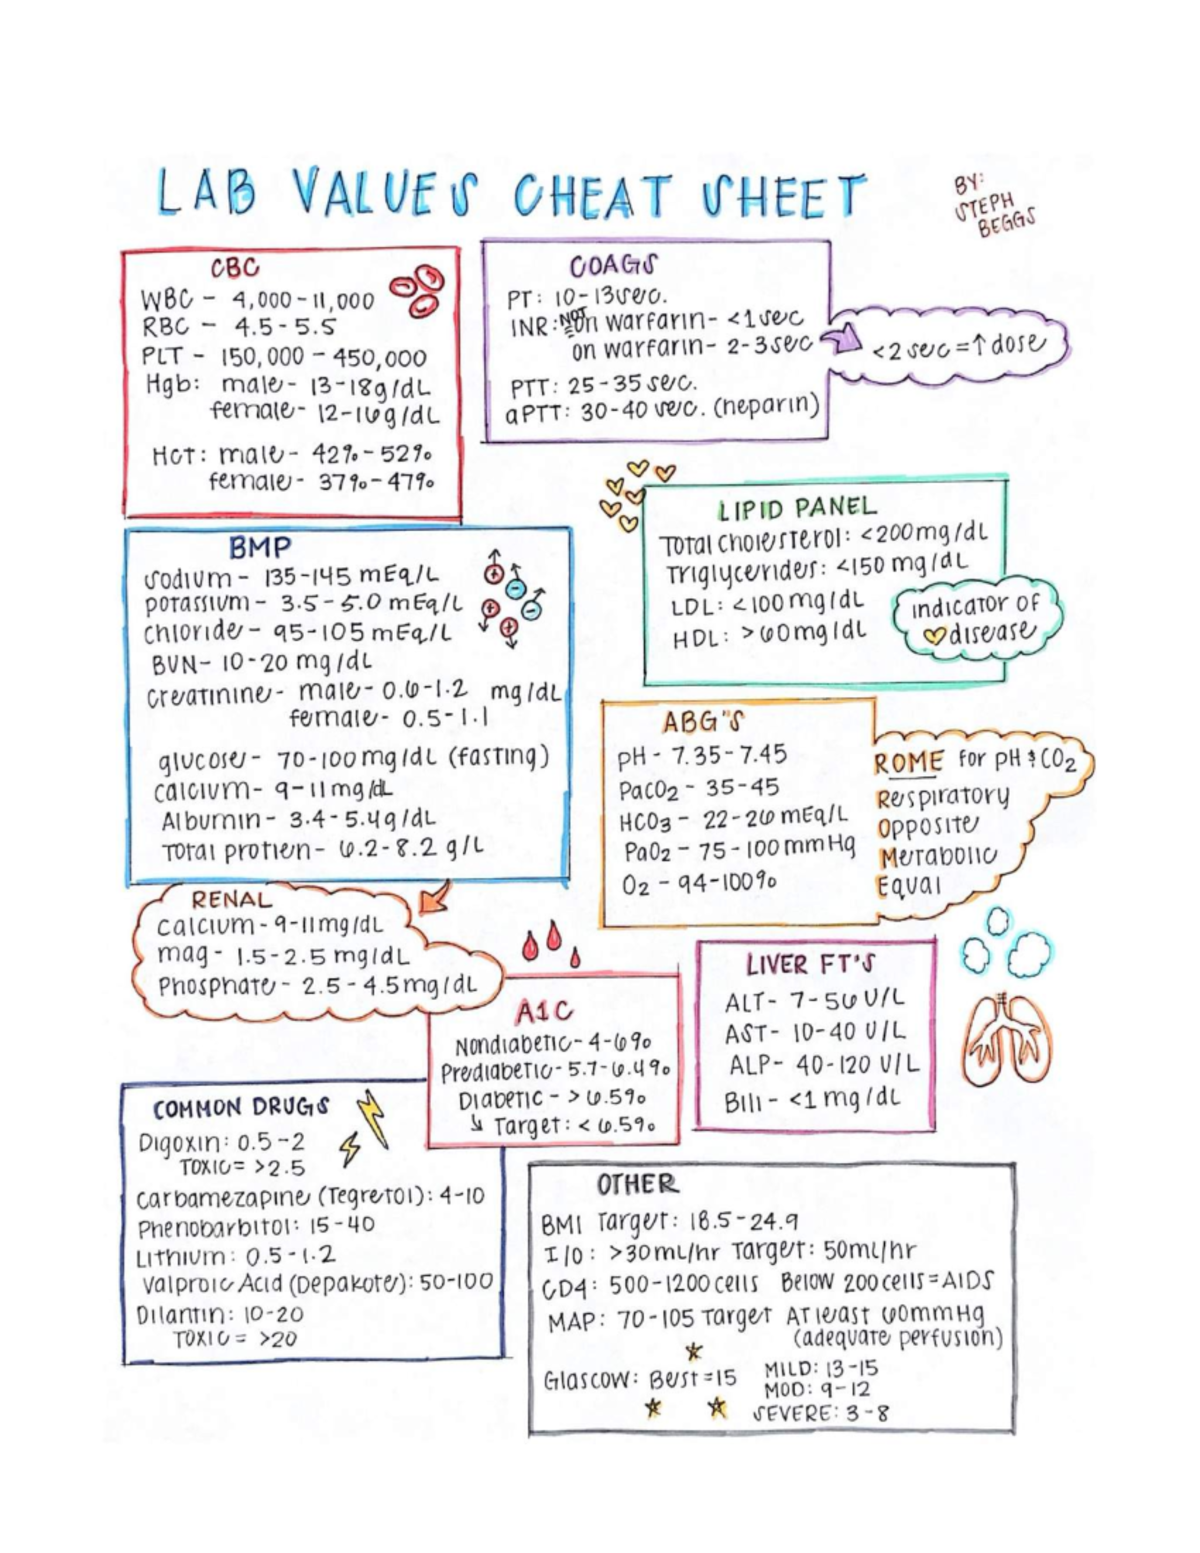 LAB VALUES CHEAT SHEET
BY:
STEPH
BEGGS
CBC
WBC - 4,000-11,000
RBC - 4.5-5.5
PLT - 150,000-450,000
Hgb: male- 13-18g/dL
female- 12-16g/dL
Hct: male- 42%-52%
female- 37%-47%
COAGS
PT: 10-13sec.
INR: NOT on warfarin- <1sec
on warfarin- 2-3sec
PTT: 25-35 sec.
aPTT: 30-40 sec. (heparin)
<2 sec=↑dose
LIPID PANEL
Total Cholesterol: <200mg/dL
Triglycerides: <150 mg/dL
LDL: <100mg/dL
HDL: >60mg/dL
indicator of
disease
BMP
Sodium- 135-145 mEq/L
potassium- 3.5-5.0 mEq/L
chloride- 95-105 mEq/L
BUN- 10-20 mg/dL
creatinine- male- 0.6-1.2 mg/dL
female- 0.5-1.1
glucose- 70-100mg/dL (fasting)
calcium- 9-11mg/dL
Albumin- 3.4-5.4g/dL
Total protien- 6.2-8.2 g/L
ABG"S
pH- 7.35-7.45
PaCO2- 35-45
HCO3- 22-26 mEq/L
PaO2- 75-100mmHg
O2-94-100%
ROME for pH & CO2
Respiratory
Opposite
Metabolic
Equal
RENAL
calcium-9-11mg/dL
mag- 1.5-2.5 mg/dL
Phosphate- 2.5-4.5mg/dL
A1C
Nondiabetic-4-6%
Prediabetic-5.7-6.4%
Diabetic- >6.5%
↳ Target: <6.5%
LIVER FT'S
ALT- 7-56 U/L
AST- 10-40 U/L
ALP- 40-120 U/L
Bili- <1mg/dL
COMMON DRUGS
Digoxin: 0.5-2
TOXIC= >2.5
Carbamezapine (Tegretol): 4-10
Phenobarbitol: 15-40
Lithium: 0.5-1.2
Valproic Acid (Depakote): 50-100
Dilantin: 10-20
TOXIC= >20
OTHER
BMI Target: 18.5-24.9
I/O: >30mL/hr Target: 50ml/hr
CD4: 500-1200 cells Below 200cells=AIDS
MAP: 70-105 Target At least 60mmHg
(adequate perfusion)
Glascow: Best=15 MILD: 13-15
MOD: 9-12
SEVERE: 3-8